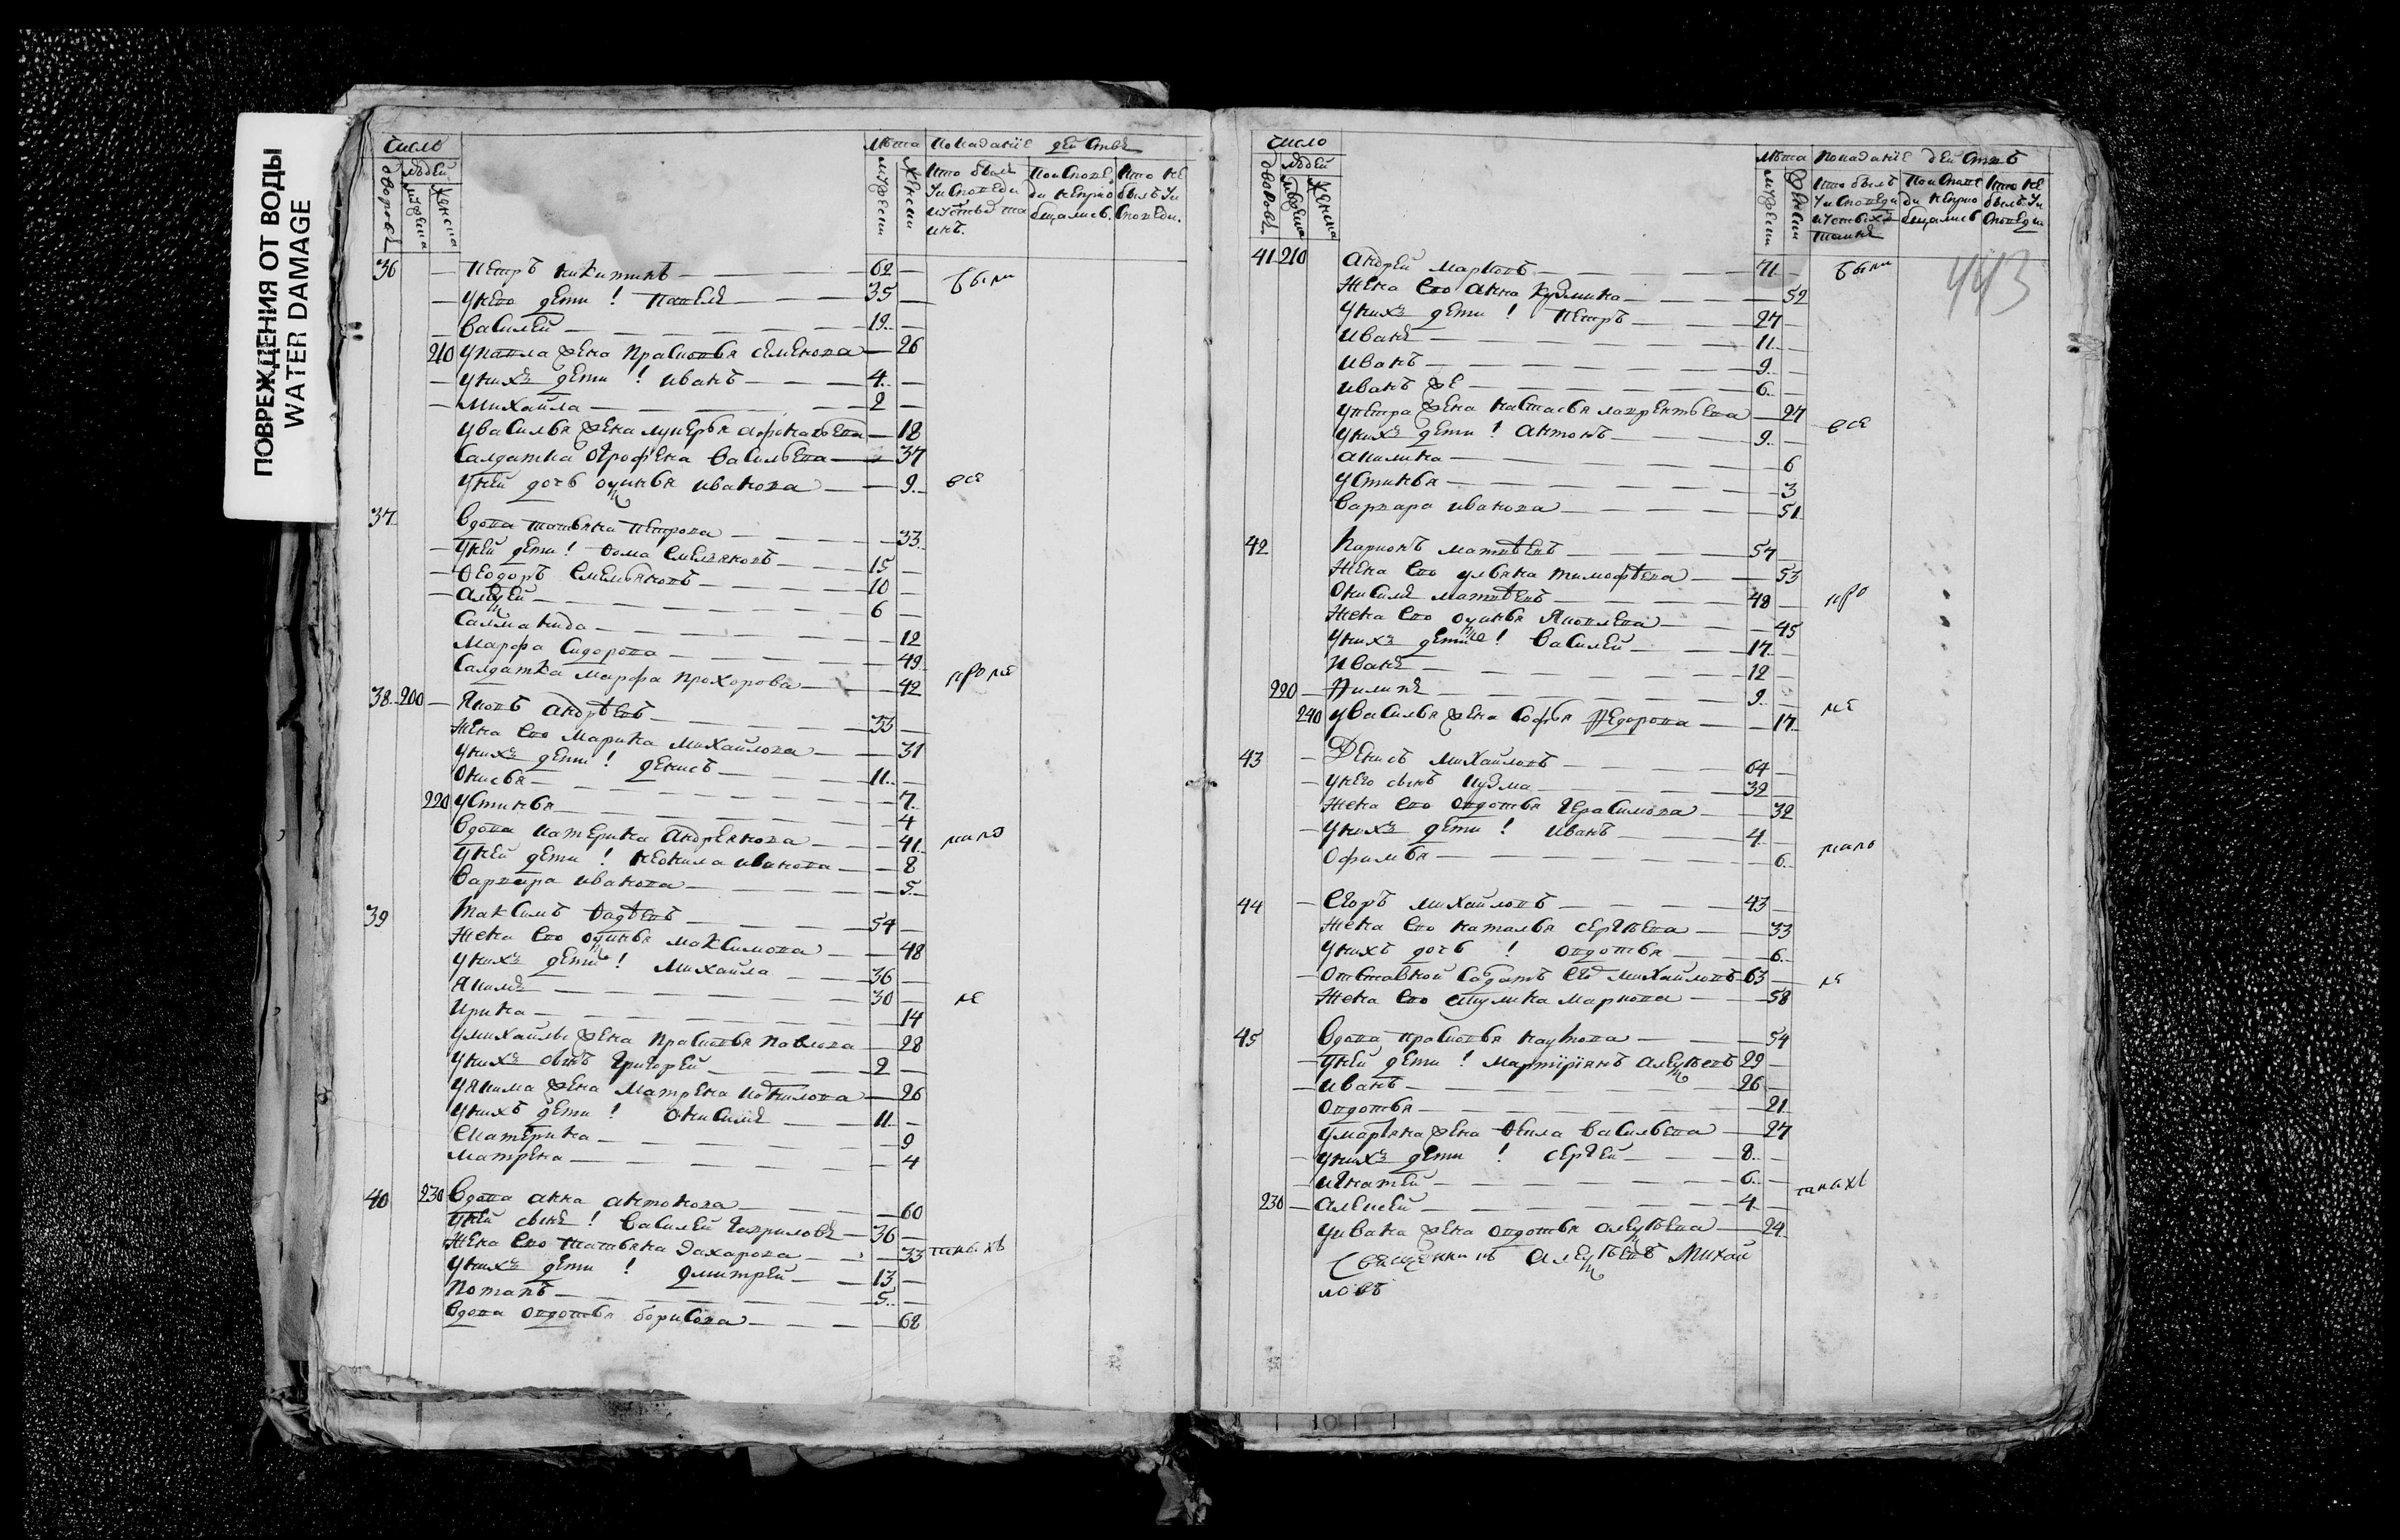 ПОВРЕЖДЕНИЯ ОТ ВОДЫ
WATER DAMAGE
Число
дворовъ
людей
мужеска
женска
Лѣта
мужески
женски
Показанiе дѣйства
Кто былъ у исповеди и у святыхъ таинъ.
По исповеди не приобщались.
Кто не былъ у исповеди.
36 — Петръ Никитинъ — 62 — были
— у него дети! Павелъ — 35 —
— Василей — 19 —
210 у Павла жена Прасковья Семенова — 26
— у нихъ дети! Иванъ — 4 —
— Михайла — 2 —
у Василья жена Лукерья Афонасьева — 18
Салдатка Аграфена Васильева — 37
у ней дочь Оксинья Иванова — 9 все
37 Вдова Татьяна Петрова — 33
— у ней дети! Ѳома Емельяновъ — 15 —
— Ѳеодоръ Емельяновъ — 10 —
— Алексей — 6 —
Саламанида — 12
Марфа Сидорова — 49
Салдатка Марфа Прохорова — 42 кроме
38 200 — Яковъ Андрѣевъ — 35 —
Жена его Марина Михайлова — 31
у нихъ дети! Денисъ — 11 —
Онисья — 7
220 Устинья — 4
Вдова Катерина Андреянова — 41 мало
у ней дети! Неонила Иванова — 8
Варвара Иванова — 5
39 Максимъ Ѳадѣевъ — 54 —
Жена его Оксинья Максимова — 48
у нихъ дети! Михайла — 36 —
Якимъ — 30 — ле
Ирина — 14
у Михайлы жена Прасковья Павлова — 28
у нихъ сынъ Григорей — 2 —
у Якима жена Матрена Корнилова — 26
у нихъ дети! Онисимъ — 11 —
Екатерина — 9
Матрена — 4
40 230 Вдова Анна Антонова — 60
у ней сынъ! Василей Гавриловъ — 36 —
Жена его Татьяна Захарова — 33 таковыхъ
у нихъ дети! Дмитрей — 13 —
Потапъ — 5 —
Вдова Овдотья Борисова — 68
Число
дворовъ
людей
мужеска
женска
Лѣта
мужески
женски
Показанiе дѣйствъ
Кто былъ у исповеди и у святыхъ таинъ
По исповеди не приобщались
Кто не былъ у исповеди
443
41 210 Андрей Марковъ — 71 — были
Жена его Анна Кузмина — 52
у нихъ дети! Петръ — 27 —
Иванъ — 11 —
Иванъ — 9 —
Иванъ же — 6 —
у Петра жена Настасья Лаврентьева — 27
у нихъ дети! Антонъ — 9 — все
Акилина — 6
Устинья — 3
Варвара Иванова — 51
42 Ларионъ Матвѣевъ — 57 —
Жена его Ульяна Тимофѣева — 53
Онисимъ Матвѣевъ — 48 — кро
Жена его Оксинья Яковлева — 45
у нихъ дети! Василей — 17 —
Иванъ — 12 —
220 — Филипъ — 9 —
240 у Василья жена Софья Федорова — 17 ме
43 — Денисъ Михайловъ — 64 —
— у него сынъ Кузма — 32 —
Жена его Овдотья Герасимова — 32
— у нихъ дети! Иванъ — 4 —
Офимья — 6 мало
44 — Егоръ Михайловъ — 43 —
Жена его Наталья Сергѣева — 33
у нихъ дочь! Овдотья — 6
— Отставной Солдатъ Егоръ Михайловъ 63 — ле
Жена его Акулина Маркова — 58
45 Вдова Прасковья Наумова — 54
— у ней дети! Мартирiянъ Алексѣевъ 29 —
— Иванъ — 26 —
Овдотья — 21
у Мартьяна жена Ѳекла Васильева — 27
— у нихъ дети! Сергей — 8 —
— Игнатей — 6 — таковыхъ
230 — Алексей — 4 —
у Ивана жена Овдотья Алексѣева — 24
Священникъ Алексѣевъ Михай
ловъ